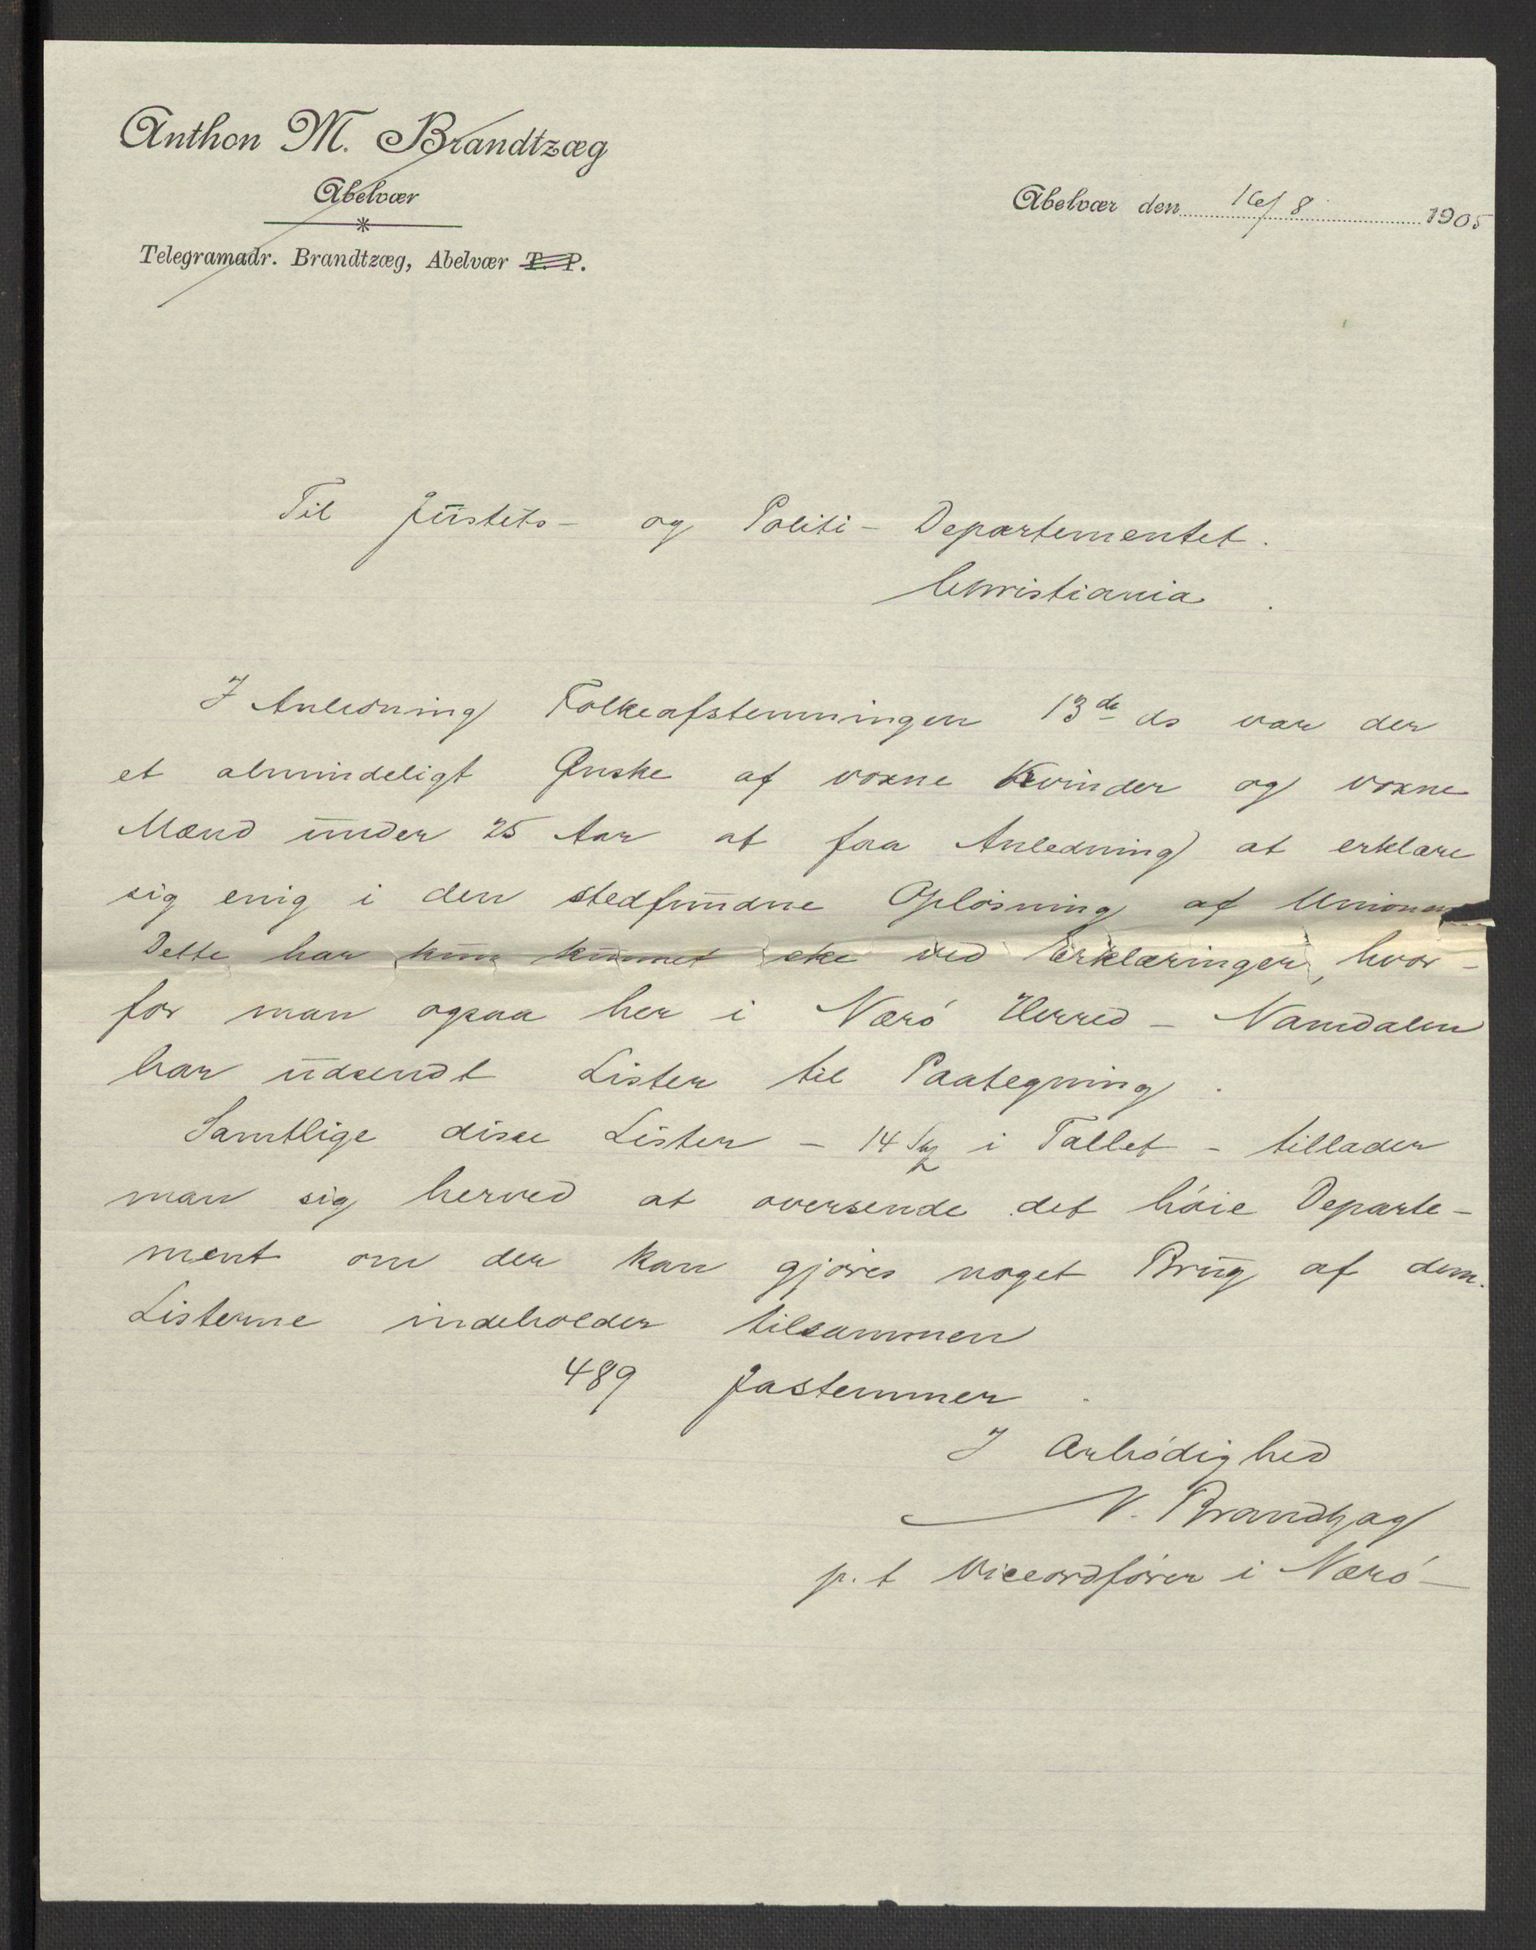 Anthon M. Brandtzæg
Abelvær
Telegramadr. Brandtzæg, Abelvær T. P.
Abelvær den 16/8 1905
Til Justits- og Politi-Departementet.
Christiania.
I Anledning Folkeafstemningen 13de ds var der
et almindeligt Ønske af voxne Kvinder og voxne
Mænd under 25 Aar at faa Anledning at erklære
sig enig i den stedfundne Opløsning af Unionen
Dette har kun kunnet ske ved Erklæringer, hvor-
for man ogsaa her i Nærö Herred - Namdalen
har udsendt Lister til Paategning.
Samtlige disse Lister - 14 i Tallet - tillader
man sig herved at oversende det høie Departe-
ment om der kan gjøres noget Brug af dem.
Listerne indeholder tilsammen
489 Jastemmer.
I Ærbödighed
N. Brandtzæg
p. t Viceordfører i Nærö